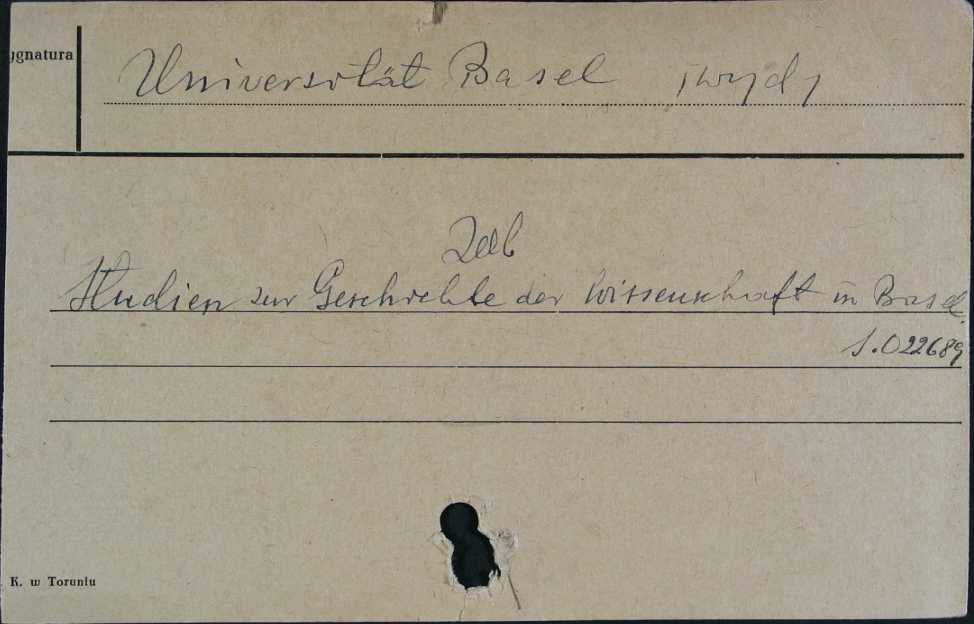 ygnatura
Universität Basel [wyd]
Zob
Studien zur Geschichte der Wissenschaft in Basel.
S.022689
K. w Toruniu